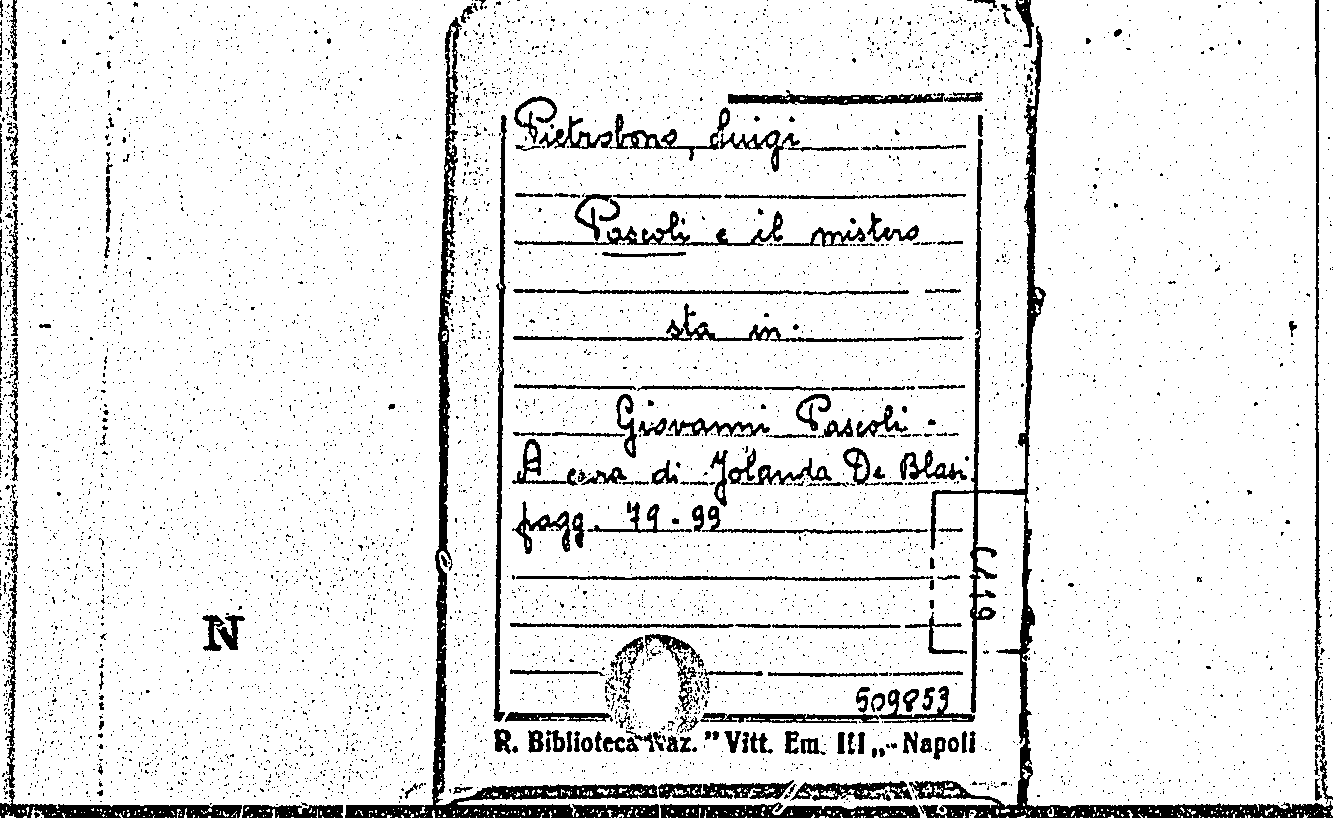 Pietrobono, Luigi
Pascoli e il mistero
sta in:
Giovanni Pascoli.
A cura di Jolanda De Blasi
pagg. 79-99
N
509853
R. Biblioteca Naz. "Vitt. Em. III„ - Napoli